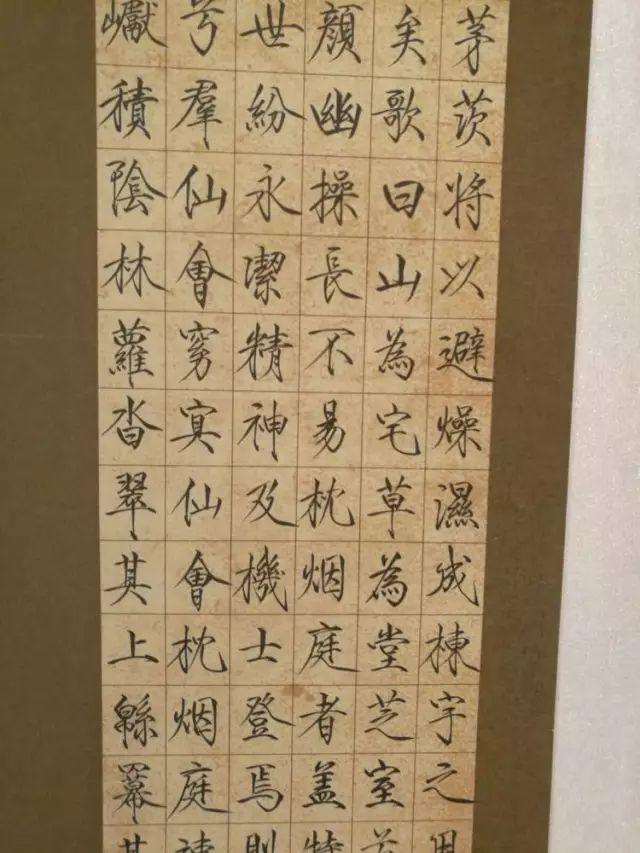 茅茨将以避燥濕成棟宇之用
矣歌曰山為宅草為堂芝室
顏幽操長不易枕烟庭者盖特
世紛永潔精神及機士登焉則
兮羣仙會窈冥仙會枕烟庭
巘積陰林蘿沓翠其上緜冪其